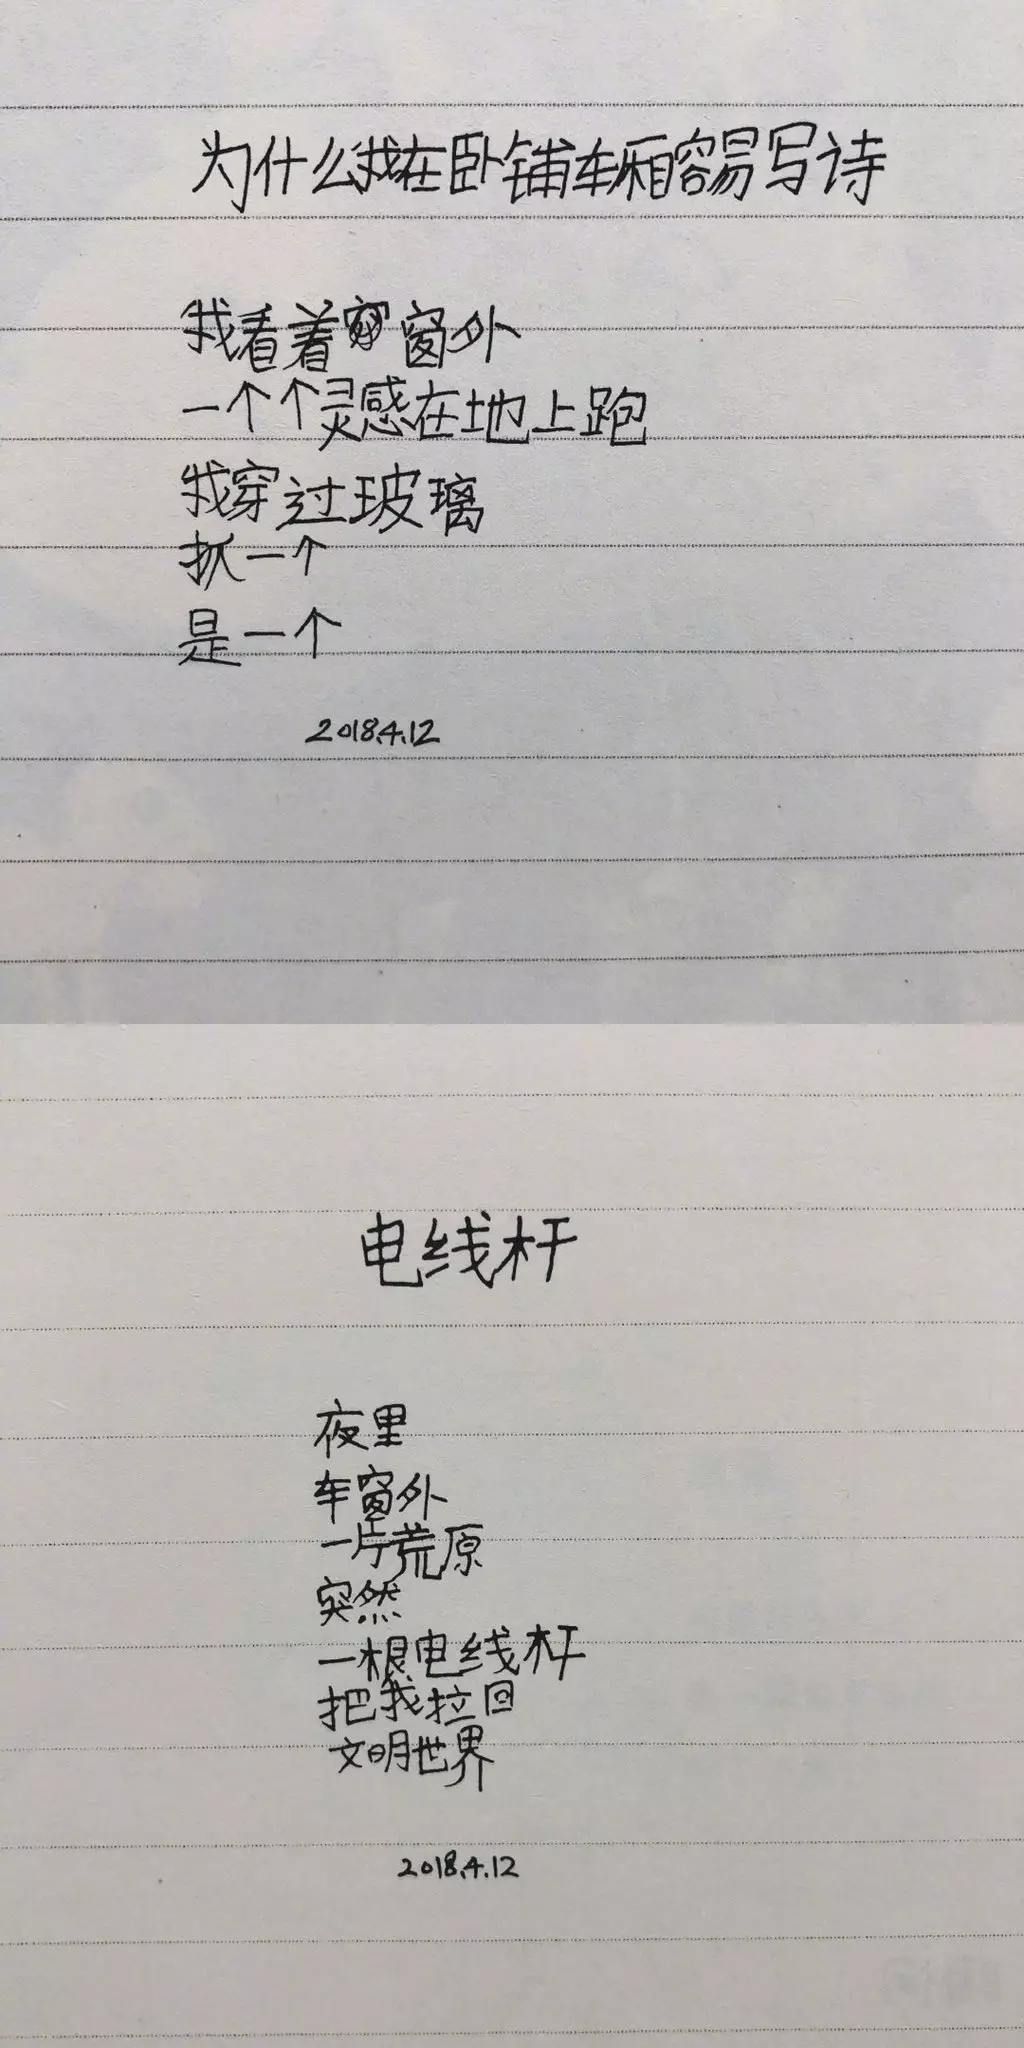 为什么我在卧铺车厢容易写诗
我看着窗外
一个个灵感在地上跑
我穿过玻璃
抓一个
是一个
2018.4.12
电线杆
夜里
车窗外
一片荒原
突然
一根电线杆
把我拉回
文明世界
2018.4.12